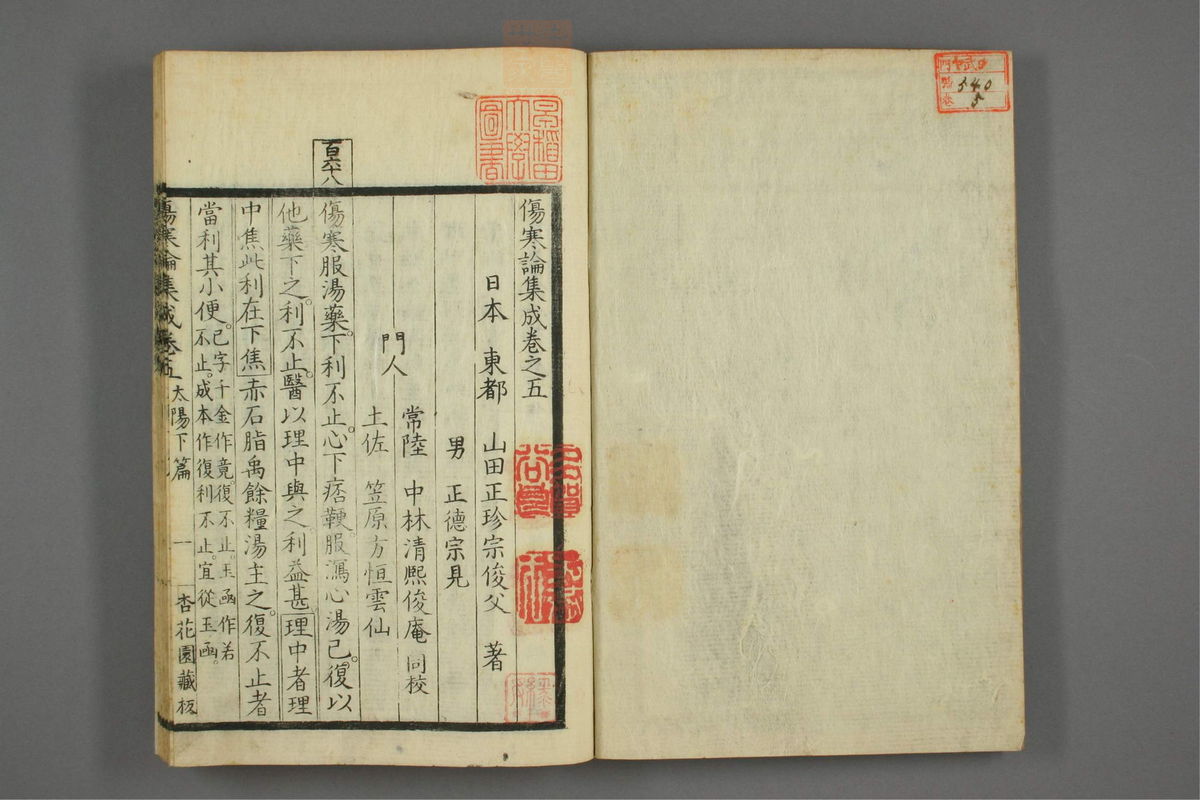 門
號 540
卷 5
早稲田
大學
圖書
傷寒論集成卷之五
日本 東都 山田正珍宗俊父 著
男 正德宗見
常陸 中林清熙俊庵 同校
門人
土佐 笠原方恒雲仙
百六十八
傷寒服湯藥。下利不止。心下痞鞕。服瀉心湯已。復以
他藥下之。利不止。醫以理中與之。利益甚。理中者理
中焦。此利在下焦。赤石脂禹餘糧湯主之。復不止者
當利其小便。已字千金作竟。復不止。玉函作若
不止。成本作復利不止。宜從玉函。
傷寒論集成卷五 太陽下篇 一 杏花園藏板